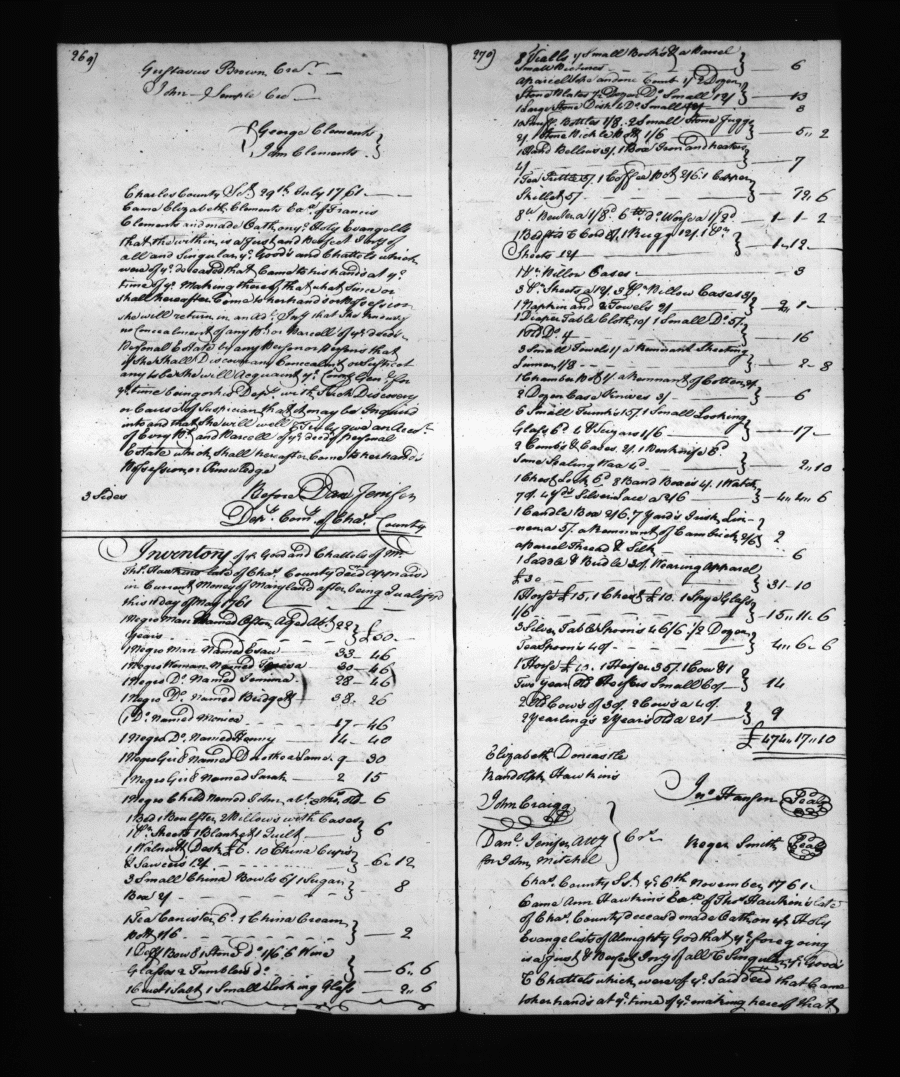 269)
Gustavus Brown Cred.r
John Semple Cred
George Clements
John Clements
Charles County Sct 29th July 1761
Came Elizabeth Clements Ex.x of Francis
Clements and made Oath on ye Holy Evangells
that the within is a Just and Perfect Invy of
all and Singular ye Goods and Chattels which
were of ye deceased that Came to his hands at ye
time of ye Making thereof that what Since or
shall hereafter Come to her hand or Possession
she will return in an Ad.l Invy that She knows
no Concealment of any Pt or Parcell of ye deced.s
Personal Estate by any Person or Persons that
if She Shall Discover any Concealment or Suspect
any to be She will Acquaint ye Com.y Gen.l for
ye time being or his Depty with Such Discovery
or Causes of Suspicion that it may be Inquired
into and that She will well & Truly give an Acct
of Every Pt and Parcell of ye deced Personal
Estate which Shall hereafter Come to her hands
Possession or Knowledge
3 Sides
Before Dan Jenifer
Depy Comy of Cha.s County
Inventory of ye Good and Chattels of Mr
Tho.s Hawkins late of Cha.s County deced Appraised
in Current Money of Maryland after being Qualifyed
this 11 day of May 1761
1 Negro Man Named Aged Abt 22
Years £60
1 Negro Man Named 33 46
1 Negro Woman Named 30 46
1 Negro Do Named Jemima 28 46
1 Negro Do Named Bridget 38 26
1 Do Named 17 46
1 Negro Do Named Henny 14 40
1 Negro Girl Named Same 9 30
1 Negro Girl Named Sarah 2 15
1 Negro Child Named John abt Old 6
1 Bed 1 Boulster, 2 Pillows with Cases
1 pr Sheets 1 Blanket 1 Quilt 6
1 Walnutt Desk £6. 10 China Cups
& Sawcers 12/ 6 12
3 Small China Bowls 6/ 1 Sugar
Box 2/ 8
1 Tea Canester 6d. 1 China Cream
Pott 1/6 2
1 Delf Bowl 1 Stone do 1/6 6 Wine
Glasses 2 Tumblers do 6 6
1 Salt 1 Small Looking Glass 2 6
270)
8 Vialls 4 Small Books & a Parcel
Small 6
a parcel and one Comb 1/ 2 Dozen
Stone Plates 1 Dozen Do Small 12/ 13
1 Large Stone Dish & Do Small 3
10 Snuff Bottles 1/8. 2 Small Stone Juggs
2/. 1 Stone Pickle Pott 1/6 5 2
1 Hand Bellows 3/. 1 Box Iron and heaters
4/ 7
1 Tea Kettle 1 Coffea Pot 2/6. 1 Copper
Skillet 5/ 7 6
8 lb Pewter a 1/8d. 6 lb do Worse a 1/2d 1 1 2
1 Bedsted & Cord 1 Rugg 12/. 1 pr
Sheets 12/ 1 12
1 pr Pillow Cases 3
3 pr Sheets a 12/. 3 pr Pillow Cases 3/
1 Napkin and 2 Towels 2/ 2 1
1 Diaper Table Cloth 10/ 1 Small Do 5/.
1 Old Do 1/ 16
3 Small Towels 1/ a Remnant Sheeting
Linnen 1/8 2 8
1 Chamber Pot 1/. a Remnant of Cotton 2/
2 Dozen Case Knives 3/ 6
6 Small Trunks 15/. 1 Small Looking
Glass 6d. 4 Razars 1/6 17
2 Combs & Cases 2/. 1 Penknife 8d
Some Sealing Wax 2 10
1 Chest Lock 6d. 8 Band Boxes 4/. 1 Watch
70/. 4 yds Silver Lace a 2/6 4 4 6
1 Candle Box 2/6. 7 Yards Irish Lin-
nen a 5/. a Remnant of Cambrick 2/6 2
a Parcel Thread & Silk 6
1 Saddle & Bridle 30/. Wearing Apparel
£30 31 10
1 Horse £15. 1 Chest 10. 1 Spye Glass
1/6 15 11 6
3 Silver Table Spoons 46/6. 1/2 Dozen
Tea Spoons 40/ 4 6 6
1 Horse £10. 1 Heifer 35/. 1 Cow & 1
Two year Old Heifer Small 60/ 14
2 Old Cows of 30/. 2 Cows a 40/.
2 Yearlings 2 Years Old a 20/ 9
£474 17 10
Elizabeth Doncastle
Randolph Hawkins
John Craigg
Danl. Jenifer Atty
for John Mitchel
Crs
Jno Hanson Seal
Roger Smith Seal
Chas. County Sst. ye 6th November 1761
Came Ann Hawkins Ex.x of Thos Hawkins late
of Chas. County deceased made Oath on ye Holy
Evangelists of Almighty God that ye foregoing
is a Just & Perfect Invy of all & Singular ye Goods
& Chattels which were of ye Said deced that Came
to her hands at ye time of ye making hereof that